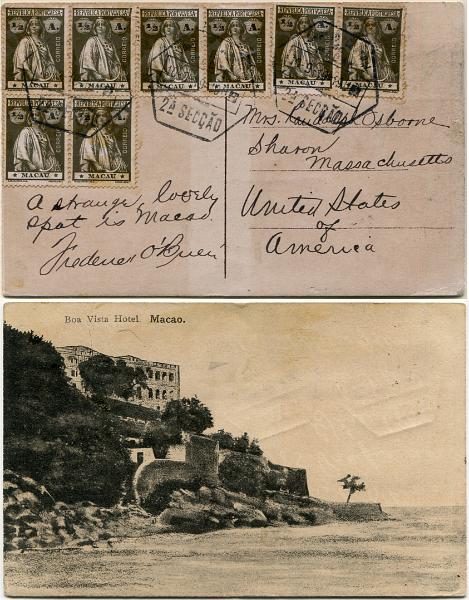 REPUBLICA PORTUGUESA
½ A.
CORREIO
MACAU
REPUBLICA PORTUGUESA
½ A.
CORREIO
MACAU
REPUBLICA PORTUGUESA
½ A.
CORREIO
MACAU
REPUBLICA PORTUGUESA
½ A.
CORREIO
MACAU
REPUBLICA PORTUGUESA
½ A.
CORREIO
MACAU
REPUBLICA PORTUGUESA
½ A.
CORREIO
MACAU
REPUBLICA PORTUGUESA
½ A.
CORREIO
MACAU
REPUBLICA PORTUGUESA
½ A.
CORREIO
MACAU
2A SECÇÃO
2A SECÇÃO
Mrs. Osborne
Sharon
Massachusetts
United States
of
America
A strange, lovely
spot is Macao.
O'Brien
Boa Vista Hotel. Macao.